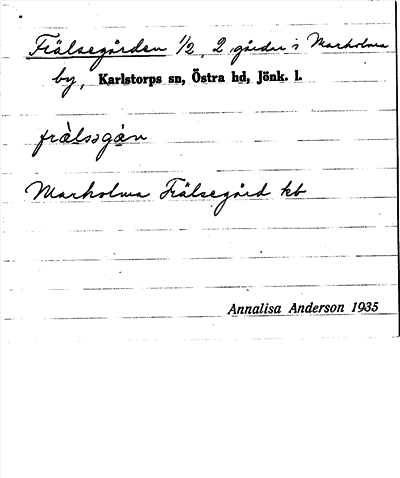 Frälsegården 1/2, 2 gårdar i Marholma
by, Karlstorps sn, Östra hd, Jönk. l.
frälsəgȧn
Marholma Frälsegård kb
Annalisa Anderson 1935